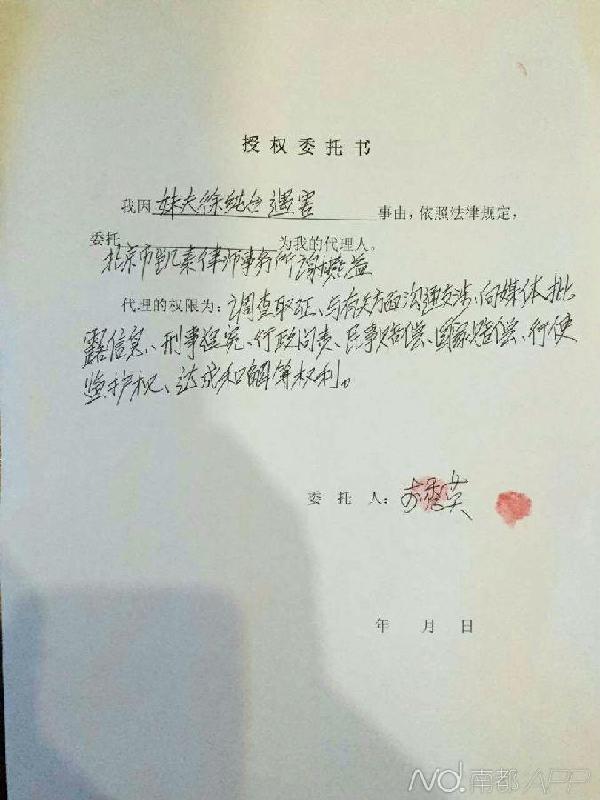 授权委托书
我因妹夫徐纯合遇害事由，依照法律规定，
委托 为我的代理人。
北京市凯泰律师事务所谢燕益
代理的权限为：调查取证、与有关方面沟通交涉、向媒体批
露信息、刑事控告、行政问责、民事赔偿、国家赔偿、行使
监护权、达成和解等权利。
委托人：李秀英
年 月 日
ND.南都APP